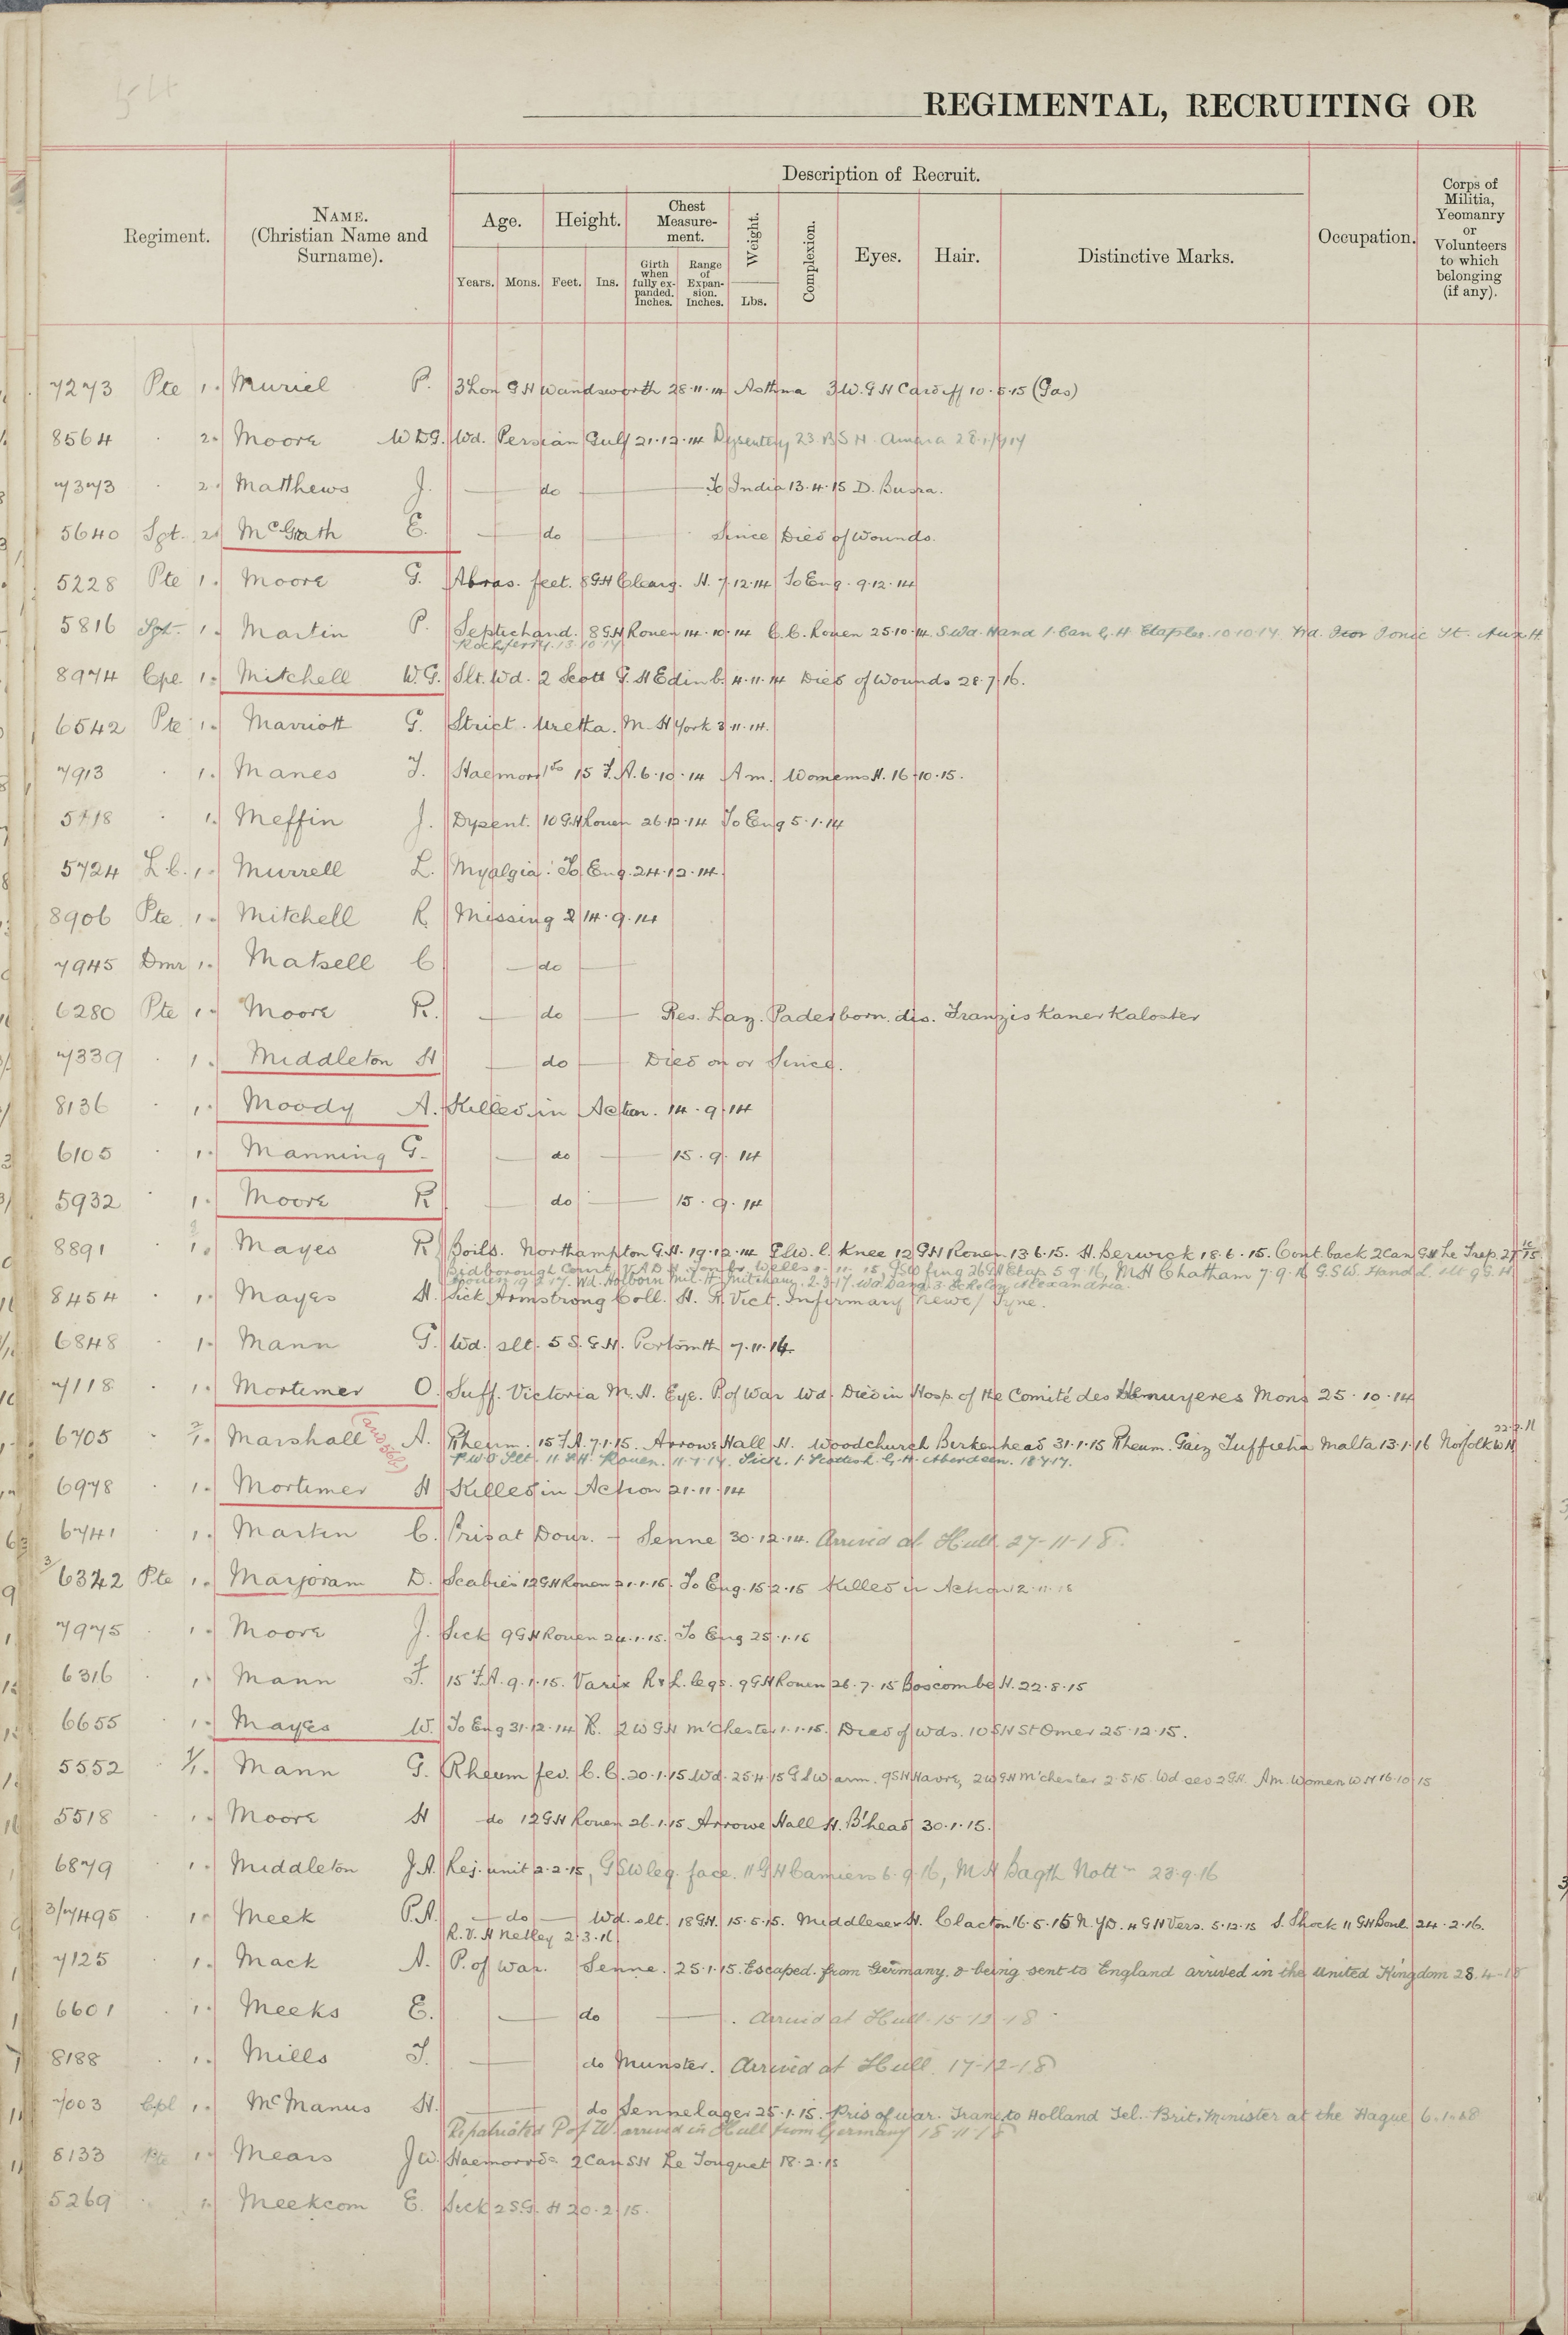 54
REGIMENTAL, RECRUITING OR
Regiment.
NAME.
(Christian Name and
Surname).
Description of Recruit.
Age.
Height.
Chest
Measure-
ment.
Weight.
Complexion.
Eyes.
Hair.
Distinctive Marks.
Occupation.
Corps of
Militia,
Yeomanry
or
Volunteers
to which
belonging
(if any).
Years.
Mons.
Feet.
Ins.
Girth
when
fully ex-
panded.
Inches.
Range
of
Expan-
sion.
Inches.
Lbs.
7273 Pte 1. Muriel P. 3 Lon G H Wandsworth 28.11.14 Asthma 3 W. G H Cardiff 10.5.15 (Gas)
8564 . 2. Moore W D G. Wd. Persian Gulf 21.12.14 Dysentery 23 B S H. Amara
7373 . 2. Matthews J. — do — To India 13.4.15 D. Busra.
5640 Sgt. 2. McGrath E. — do — Since Died of Wounds.
5228 Pte 1. Moore G. Abras. feet. 8 GH Clearg. H. 7.12.14 To Eng. 9.12.14
5816 Sgt. 1. Martin P. Septic hand. 8 G.H Rouen 14.10.14 C. C. Rouen 25.10.14. S. Wd. Hand 1. Can G. H Etaples. 10.10.17
Rockferry. 13.10.17
8974 Cpl 1. Mitchell W. G. Slt. Wd. 2 Scott G. H Edinb. 4.11.14 Died of Wounds 28.7.16.
6542 Pte 1. Marriott G. Strict. Uretha. M. H York 3.11.14.
7913 . 1. Manes T. Haemorrds 15 F. A. 6.10.14 Am. Womens H. 16.10.15.
5718 . 1. Meffin J. Dysent. 10 G.H Rouen 26.12.14 To Eng 5.1.14
5724 L.C. 1. Murrell L. Myalgia. To Eng. 24.12.14.
8906 Pte 1. Mitchell R. Missing 14.9.14
7945 Dmr 1. Matsell C — do —
6280 Pte 1. Moore R. — do — Res. Laz. Paderborn. dis. Franziskaner Kaloster
7339 . 1. Middleton H — do — Died on or Since.
8136 . 1. Moody A. Killed in Action. 14.9.14
6105 . 1. Manning G. — do — 15.9.14
5932 . 1. Moore R — do — 15.9.14
8891 . 1. Mayes R Boils. Northampton G.H. 19.12.14 G S W. l. Knee 12 G H Rouen 13.6.15. H. Berwick 18.6.15. Cont. back 2 Can G H Le Trep.
Bidborough Court V A D H. Wells GSW fing 26 G H Etap 5.9.16, M H Chatham 7.9.16 G.S.W. Hand L. slt 9 G.H
Rouen Wd. Holborn Mil. H. Mitcham. 2.3.17 Alexandria.
8454 . 1. Mayes H. Sick Armstrong Coll. H. R. Vict. Infirmary Newc/ Tyne.
6848 . 1. Mann G. Wd. slt. 5 S. G. H. Portsmth 7.11.14.
7118 . 1. Mortimer O. Suff. Victoria M. H. Eye. P of War Wd. Died in Hosp of the Comité des Mons 25.10.14
6705 . 2/1. Marshall A. Rheum. 15 F.A. 7.1.15. Arrowe Hall H. Woodchurch Birkenhead 31.1.15 Rheum. Gaiz Tuffieha Malta 13.1.16 Norfolk W H
11 S H. Rouen. 11.7.17. Sick. 1 Scottish G. H. Aberdeen. 18.7.17.
6978 . 1. Mortimer H Killed in Action 21.11.14
6741 . 1. Martin C. Pris at Dour. — Senne 30.12.14. Arrived at Hull. 27-11-18.
3/6342 Pte 1. Marjoram D. Scabies 12 G H Rouen 21.1.15. To Eng. 15.2.15 Killed in Action
7975 . 1. Moore J. Sick 9 G H Rouen 24.1.15. To Eng 25.1.16
6316 . 1. Mann F. 15 F.A. 9.1.15. Varix R & L. legs. 9 G H Rouen 26.7.15 Boscombe H. 22.8.15
6655 . 1. Mayes W. To Eng 31.12.14 R. 2 W G H M'Chester 1.1.15. Died of Wds. 10 S H St Omer 25.12.15.
5552 . 1/1. Mann G. Rheum fev. C. C. 20.1.15 Wd. 25.4.15 G S W arm. 9 S H Havre, 2 W G H M'chester 2.5.15. Wd sev 2 G H. Am. Women W H 16.10.15
5518 . 1. Moore H do 12 G H Rouen 26.1.15 Arrowe Hall H. B'head 30.1.15.
6879 . 1. Middleton J. A. Rej. unit 2.2.15, G S W leg. face. 11 G H Camiers 6.9.16, M H Bagth Nottm 23.9.16
3/7495 . 1. Meek P.A. — do — Wd. slt. 18 G H. 15.5.15. Middlesex H. Clacton 16.5.15 N. Y D. 4 G H Vers. 5.12.15 S. Shock 11 G H Boul. 24.2.16.
R. V. H Netley 2.3.16
7125 . 1. Mack A. P. of War. Senne. 25.1.15. Escaped from Germany. & being sent to England arrived in the United Kingdom 28.4-18
6601 . 1. Meeks E. — do — . Arrivd at Hull. 15-12-18
8188 . 1. Mills T. — do Munster. Arrived at Hull. 17-12-18
7003 Cpl 1. McManus H. — do Sennelager 25.1.15. Pris of War. Trans. to Holland Tel. Brit. Minister at the Hague 6.1.18
Repatriated P of W. arrived in Hull from Germany 18.11.18
8133 Pte 1. Mears J W. Haemorrds 2 Can S H Le Touquet 18.2.15
5269 . 1. Meekcom E. Sick 2 S.G. H 20.2.15.